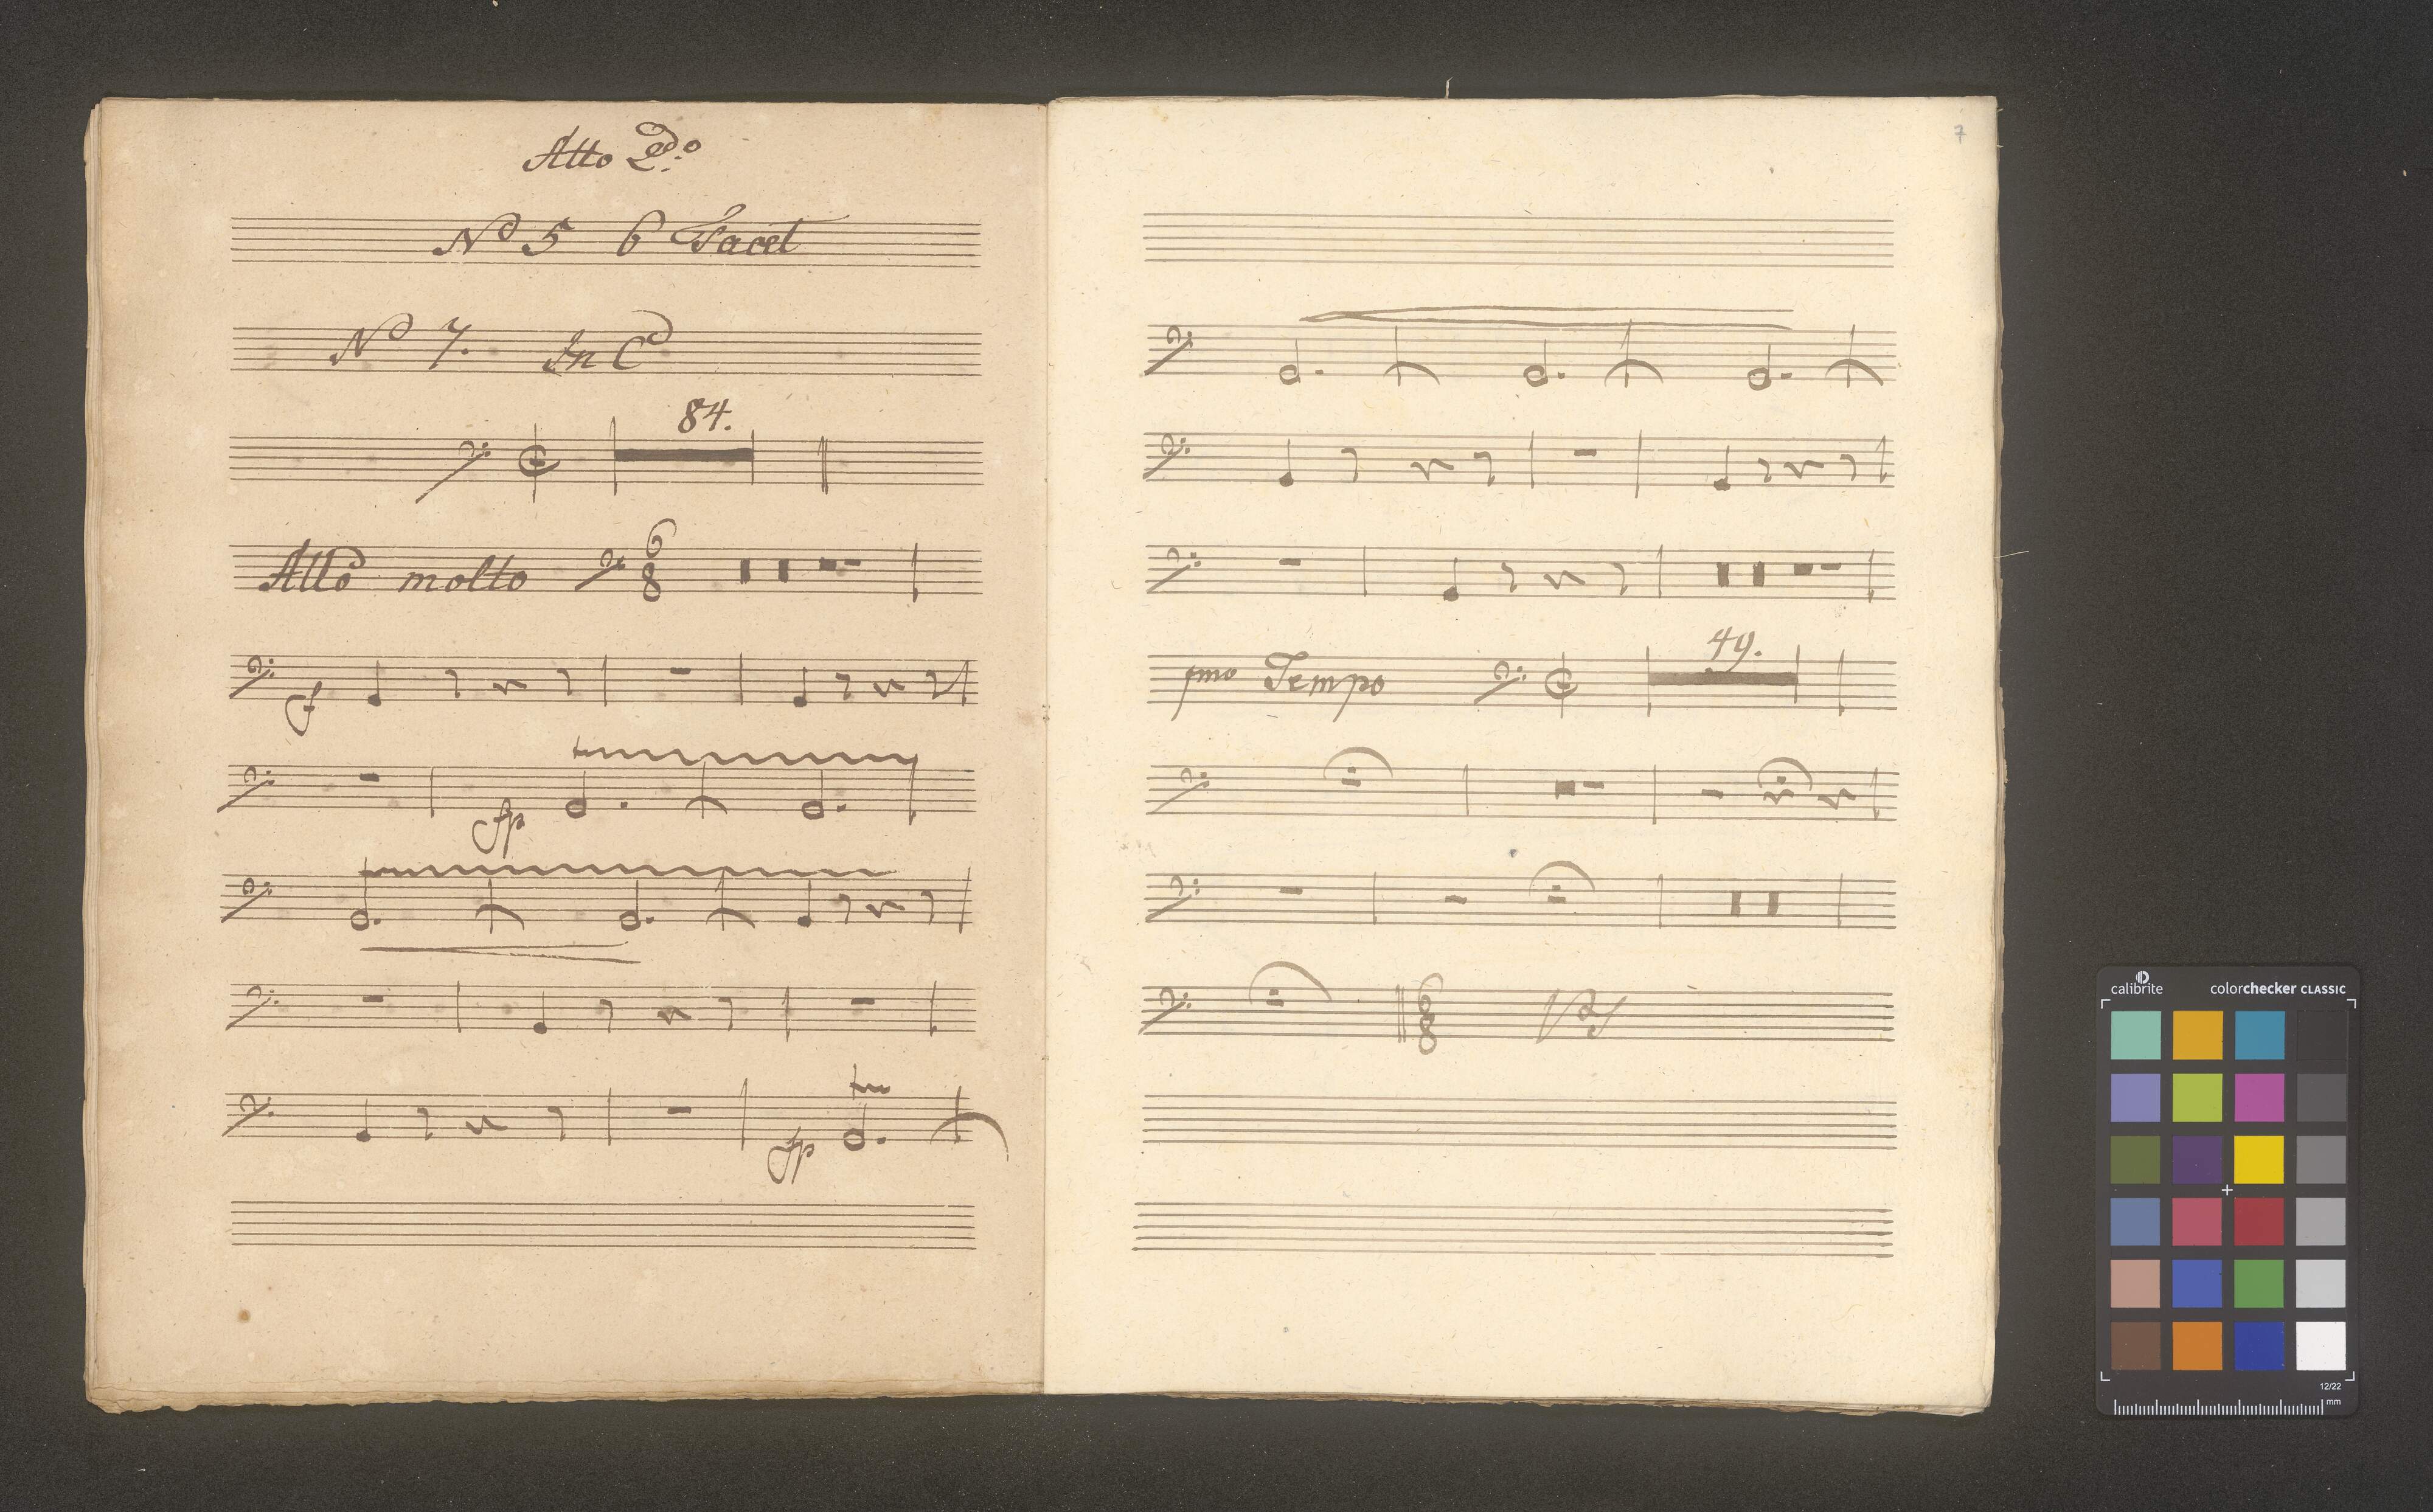 Atto 2do
No 5 6 Tacet
No 7. In C
84.
Allo molto 6 8
f
fp
fp
7
49.
pmo Tempo
6 8 VS
calibrite colorchecker CLASSIC
12/22
mm